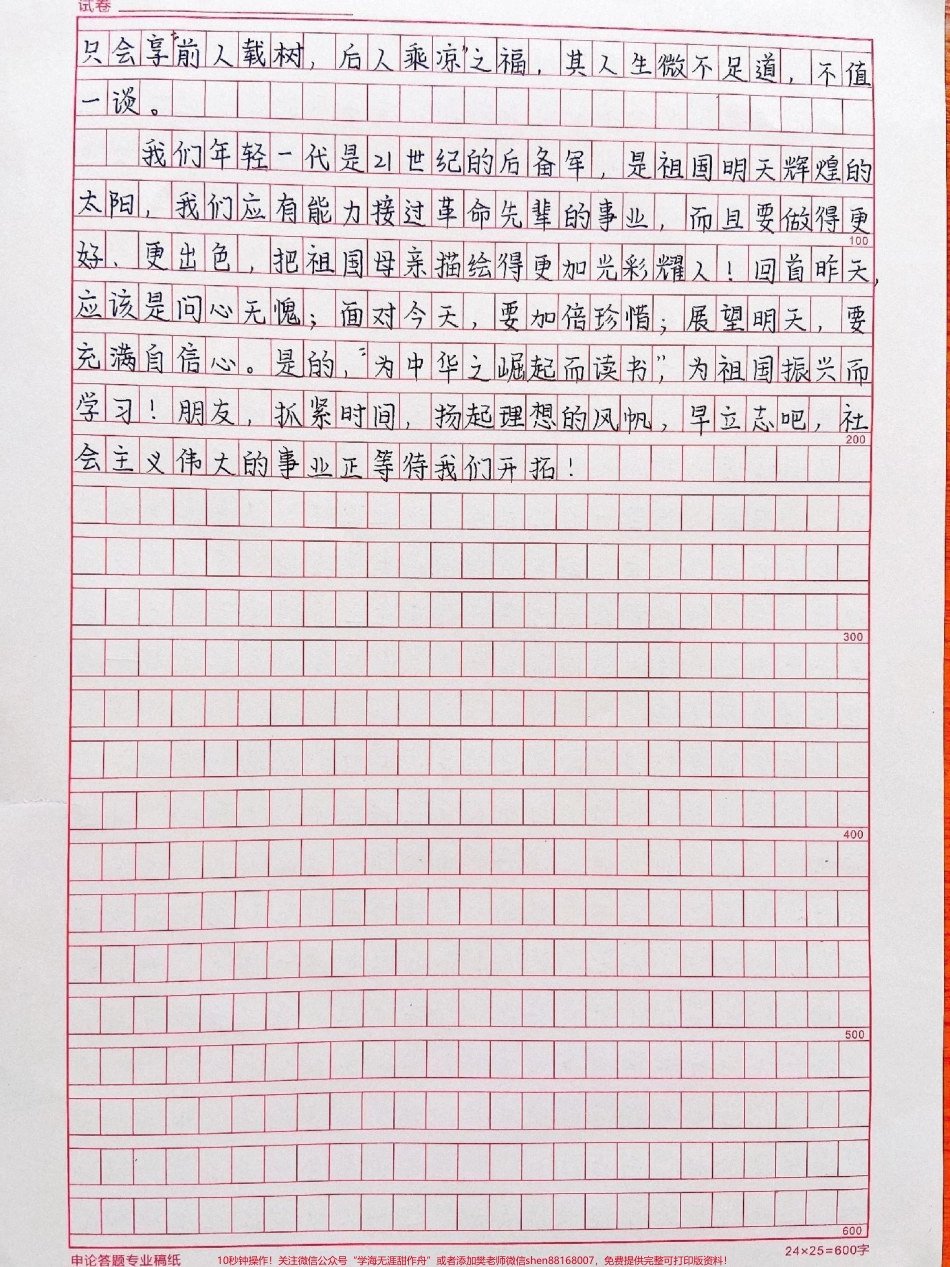 试卷
只会享“前人载树，后人乘凉”之福，其人生微不足道，不值
一谈。
我们年轻一代是21世纪的后备军，是祖国明天辉煌的
太阳，我们应有能力接过革命先辈的事业，而且要做得更
100
好、更出色，把祖国母亲描绘得更加光彩耀人！回首昨天，
应该是问心无愧；面对今天，要加倍珍惜；展望明天，要
充满自信心。是的，“为中华之崛起而读书”，为祖国振兴而
学习！朋友，抓紧时间，扬起理想的风帆，早立志吧，社
200
会主义伟大的事业正等待我们开拓！
300
400
500
600
申论答题专业稿纸
24×25=600字
10秒钟操作！关注微信公众号“学海无涯甜作舟”或者添加樊老师微信shen88168007，免费提供完整可打印版资料！